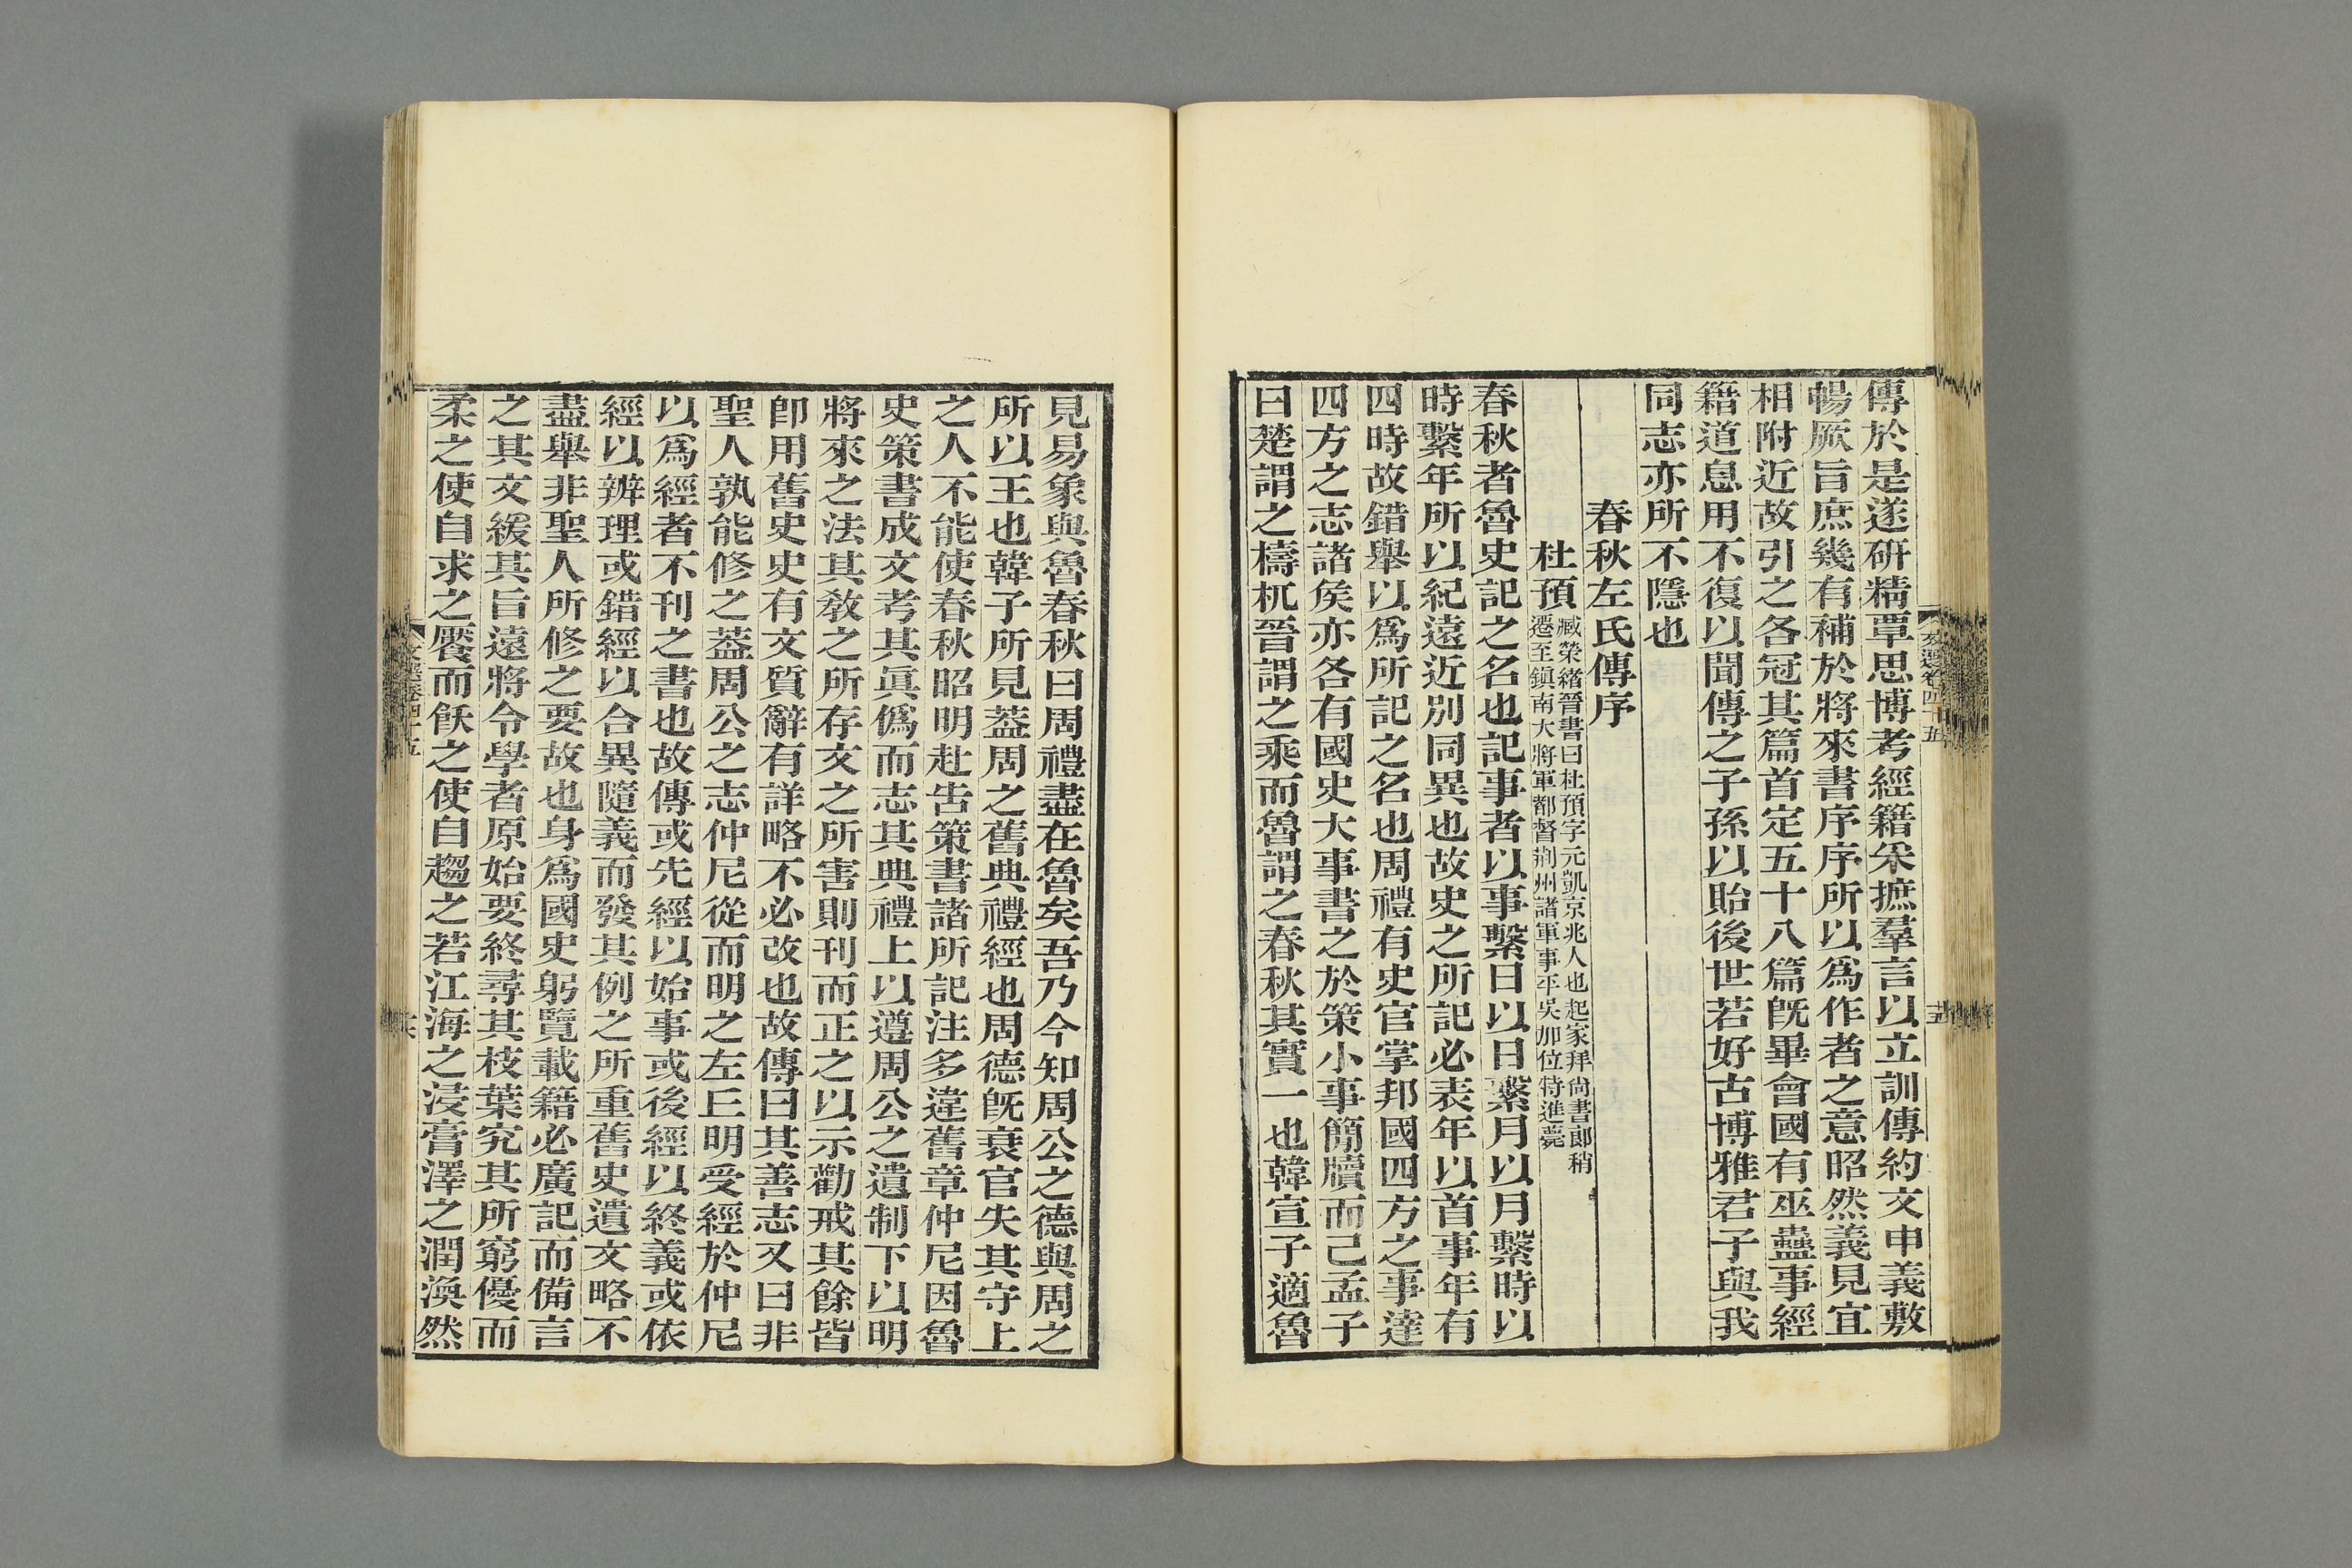 傳於是遂研精覃思博考經籍采摭羣言以立訓傳約文申義敷
暢厥旨庶幾有補於將來書序序所以爲作者之意昭然義見宜
相附近故引之各冠其篇首定五十八篇旣畢會國有巫蠱事經
籍道息用不復以聞傳之子孫以貽後世若好古博雅君子與我
同志亦所不隱也
春秋左氏傳序
杜預
臧榮緒晉書曰杜預字元凱京兆人也起家拜尙書郞稍
遷至鎭南大將軍都督荆州諸軍事平吳加位特進薨
春秋者魯史記之名也記事者以事繫日以日繫月以月繫時以
時繫年所以紀遠近別同異也故史之所記必表年以首事年有
四時故錯舉以爲所記之名也周禮有史官掌邦國四方之事達
四方之志諸矦亦各有國史大事書之於策小事簡牘而己孟子
曰楚謂之檮杌晉謂之乘而魯謂之春秋其實一也韓宣子適魯
見易象與魯春秋曰周禮盡在魯矣吾乃今知周公之德與周之
所以王也韓子所見葢周之舊典禮經也周德旣衰官失其守上
之人不能使春秋昭明赴告策書諸所記注多違舊章仲尼因魯
史策書成文考其眞僞而志其典禮上以遵周公之遺制下以明
將來之法其敎之所存文之所害則刊而正之以示勸戒其餘皆
卽用舊史史有文質辭有詳略不必改也故傳曰其善志又曰非
聖人孰能修之葢周公之志仲尼從而明之左丘明受經於仲尼
以爲經者不刊之書也故傳或先經以始事或後經以終義或依
經以辨理或錯經以合異隨義而發其例之所重舊史遺文略不
盡舉非聖人所修之要故也身爲國史躬覽載籍必廣記而備言
之其文緩其旨遠將令學者原始要終尋其枝葉究其所窮優而
柔之使自求之饜而飫之使自趨之若江海之浸膏澤之潤渙然
文選卷四十五